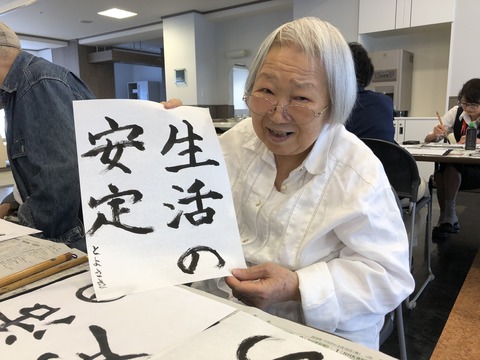 生活の
安定